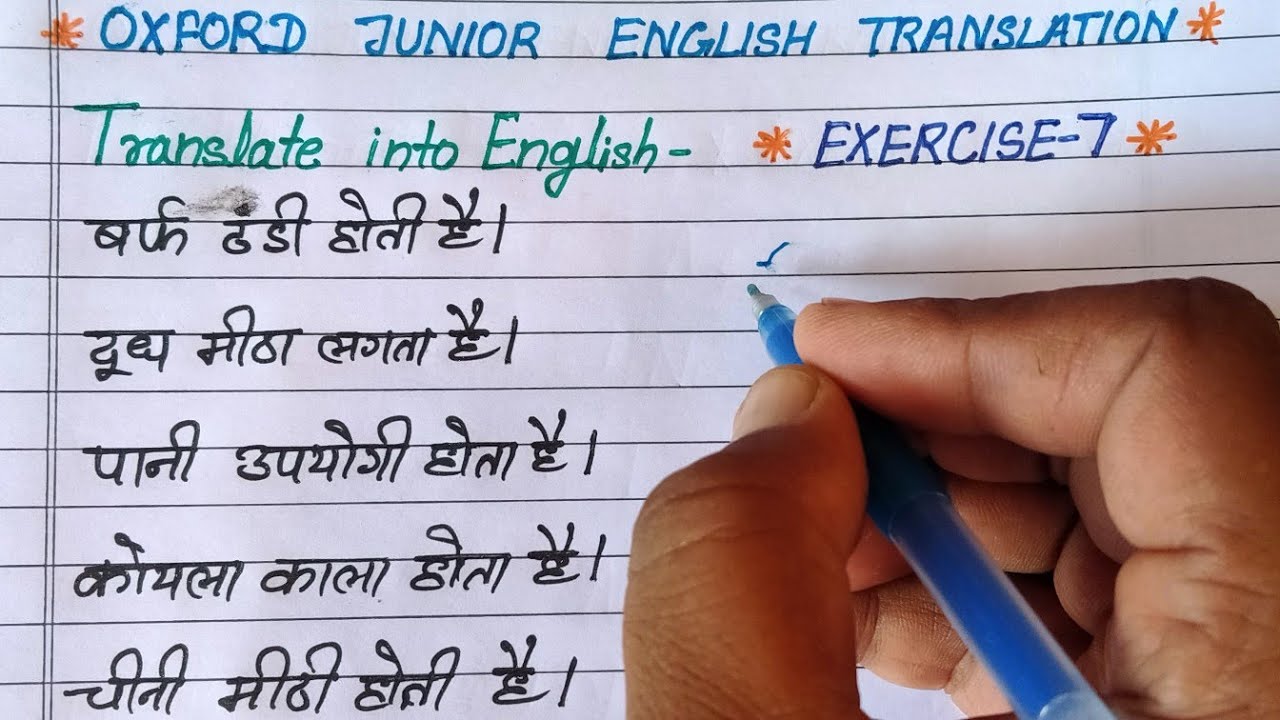 * OXFORD JUNIOR ENGLISH TRANSLATION *
Translate into English - * EXERCISE-7 *
बर्फ ठंडी होती है।
दूध मीठा लगता है।
पानी उपयोगी होता है।
कोयला काला होता है।
चीनी मीठी होती है।